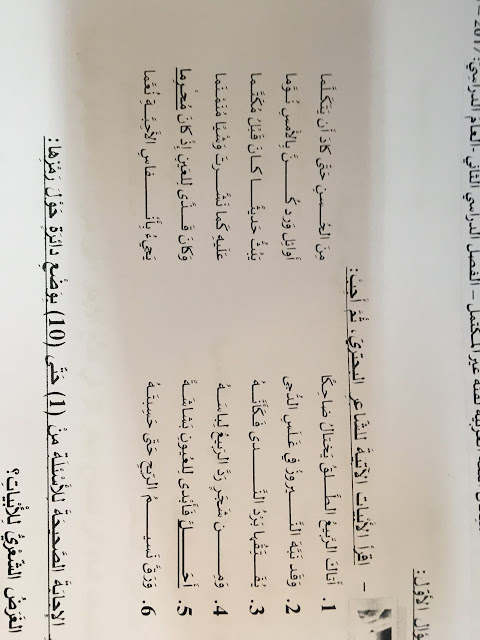 اللغة العربية لفئة غير المكتمل – الفصل الدراسي الثاني-العام الدراسي: 2017/
وال الأول:
– اقرأ الأبيات الآتية للشاعر البحتري، ثم أجب:
1. أتاك الربيع الطلق يختال ضاحكًا من الحسن حتى كاد أن يتكلما
2. وقد نبه النيروز في غلس الدجى أوائل ورد كن بالأمس نوما
3. يفتقها برد الندى فكأنه يبث حديثًا كان قبل مكتما
4. ومن شجر رد الربيع لباسه عليه كما نشرت وشيًا منمنما
5. أحل فأبدى للعيون بشاشة وكان قذى للعين إذ كان محرما
6. ورق نسيم الريح حتى حسبته يجيء بأنفاس الأحبة نعما
الإجابة الصحيحة للأسئلة من (1) حتى (10) بوضع دائرة حول رمزها:
الغرض الشعري للأبيات؟